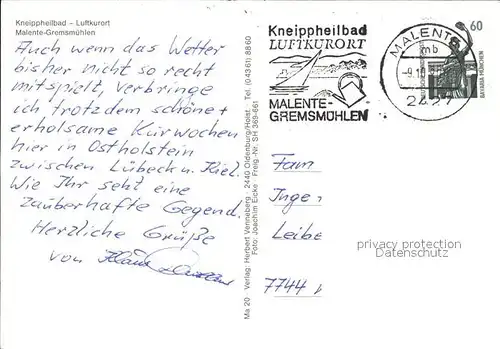 Kneippheilbad – Luftkurort
Malente-Gremsmühlen
Auch wenn das Wetter
bisher nicht so recht
mitspielt, verbringe
ich trotzdem schöne +
erholsame Kurwochen
hier in Ostholstein
zwischen Lübeck u. Kiel.
Wie Ihr seht eine
zauberhafte Gegend.
Herzliche Grüße
von Klaus
Ma 20 Verlag: Herbert Venneberg · 2440 Oldenburg/Holst. Tel. (04361) 8860
Foto: Joachim Eicke · Freig.-Nr. SH 369-661
Kneippheilbad
LUFTKURORT
MALENTE-
GREMSMÜHLEN
MALENTE
mb
60
BAVARIA MÜNCHEN
Fam
Inge
Leibe
7744
privacy protection
Datenschutz